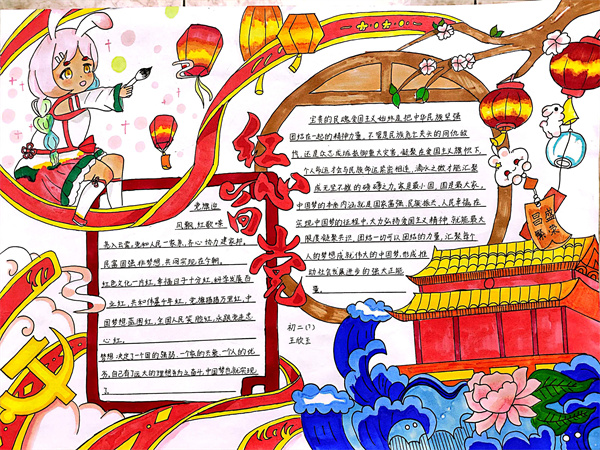 红心向党
党旗迎
风飘,红歌嘹
亮入云霄,党和人民一家亲,齐心协力建家邦,
民富国强非梦想,共同实现在今朝。
红色文化一片红,幸福日子十分红,科学发展百
业红,共和伟业千年红,党旗插插万里红,中
国梦想蓝图红,全国人民笑脸红,永跟党走忠
心红。
梦想,决定了一个国的强弱,一家的兴衰,一个人的优
劣,自己有了远大的理想并为之奋斗,中国梦也就实现
了。
宝贵的民魂爱国主义始终是把中华民族坚强
团结在一起的精神力量,不管是民族危亡关头的同仇敌
忾,还是众志成城抵御重大灾害,凝聚在爱国主义旗帜下,
个人命运才会与民族命运紧密相连,滴水之微才能汇聚
成无坚不摧的磅礴之力,家是最小国,国是最大家,
中国梦的本质内涵就是国家富强,民族振兴,人民幸福,在
实现中国梦的征程中,大力弘扬爱国主义精神,就能最大
限度凝聚共识,团结一切可以团结的力量,汇聚每个
人的梦想成就伟大的中国梦,形成推
动社会发展进步的强大正能
量。
初二(1)
王欣玉
繁荣
昌盛